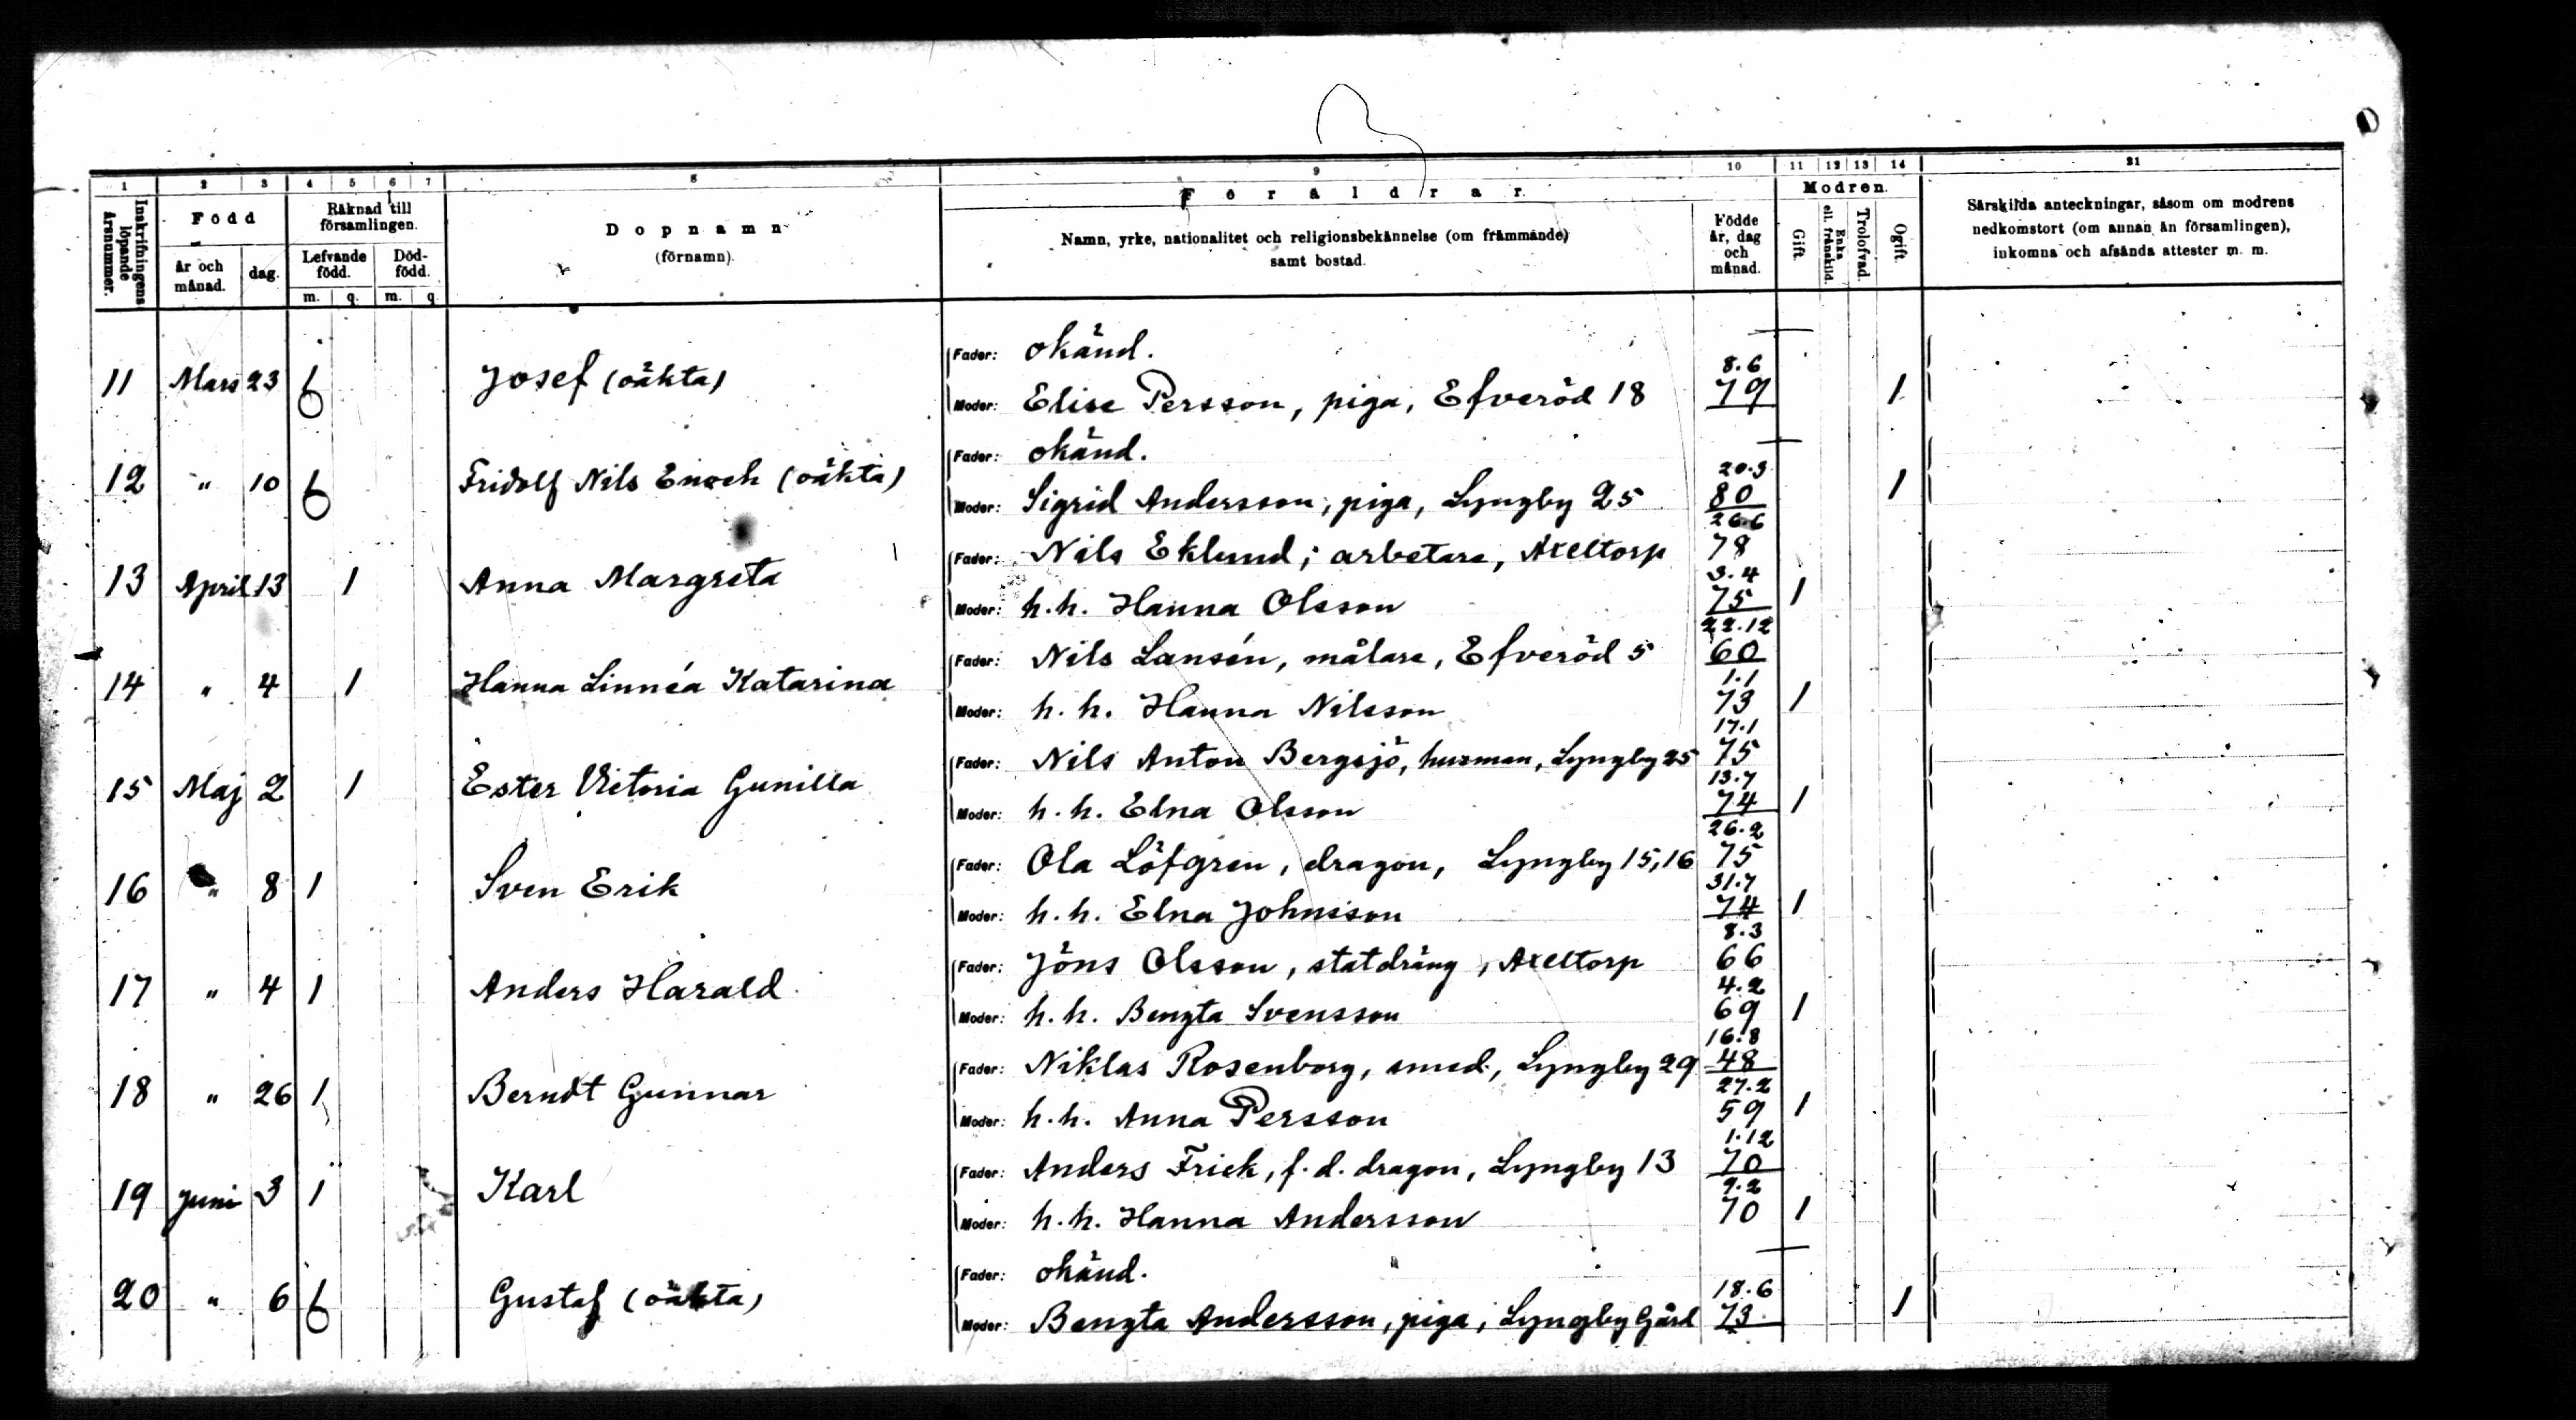 3
1 2 3 4 5 6 7 8 9 10 11 12 13 14 21
Inskrifningens löpande årsnummer.
Född
Räknad till församlingen.
Dopnamn (förnamn).
Föräldrar.
Modren.
Särskilda anteckningar, såsom om modrens nedkomstort (om annan än församlingen), inkomna och afsända attester m. m.
år och månad. dag. Lefvande född. Död-född.
m. q. m. q.
Namn, yrke, nationalitet och religionsbekännelse (om främmande) samt bostad.
Födde år, dag och månad.
Gift. Enka ell. frånskild. Trolofvad. Ogift.
11 Mars 23 Josef (oäkta)
Fader: okänd. —
Moder: Elise Persson, piga, Efveröd 18 8.6 79 1
12 " 10 Fridolf Nils Enoch (oäkta)
Fader: okänd. —
Moder: Sigrid Andersson, piga, Lyngby 25 20.3 80 1
13 April 13 1 Anna Margreta
Fader: Nils Eklund, arbetare, Axeltorp 26.6 78
Moder: h.h. Hanna Olsson 3.4 75 1
14 " 4 1 Hanna Linnéa Katarina
Fader: Nils Lansén, målare, Efveröd 5 22.12 60
Moder: h.h. Hanna Nilsson 1.1 73 1
15 Maj 2 1 Ester Victoria Gunilla
Fader: Nils Anton Bergsjö, husman, Lyngby 25 17.1 75
Moder: h.h. Elna Olsson 13.7 74 1
16 " 8 1 Sven Erik
Fader: Ola Löfgren, dragon, Lyngby 15,16 26.2 75
Moder: h.h. Elna Johnsson 31.7 74 1
17 " 4 1 Anders Harald
Fader: Jöns Olsson, statdräng, Axeltorp 8.3 66
Moder: h.h. Bengta Svensson 4.2 69 1
18 " 26 1 Berndt Gunnar
Fader: Niklas Rosenborg, smed, Lyngby 29 16.8 48
Moder: h.h. Anna Persson 27.2 59 1
19 Juni 3 1 Karl
Fader: Anders Frick, f.d. dragon, Lyngby 13 1.12 70
Moder: h.h. Hanna Andersson 9.2 70 1
20 " 6 Gustaf (oäkta)
Fader: okänd. —
Moder: Bengta Andersson, piga, Lyngby Gård 18.6 73 1